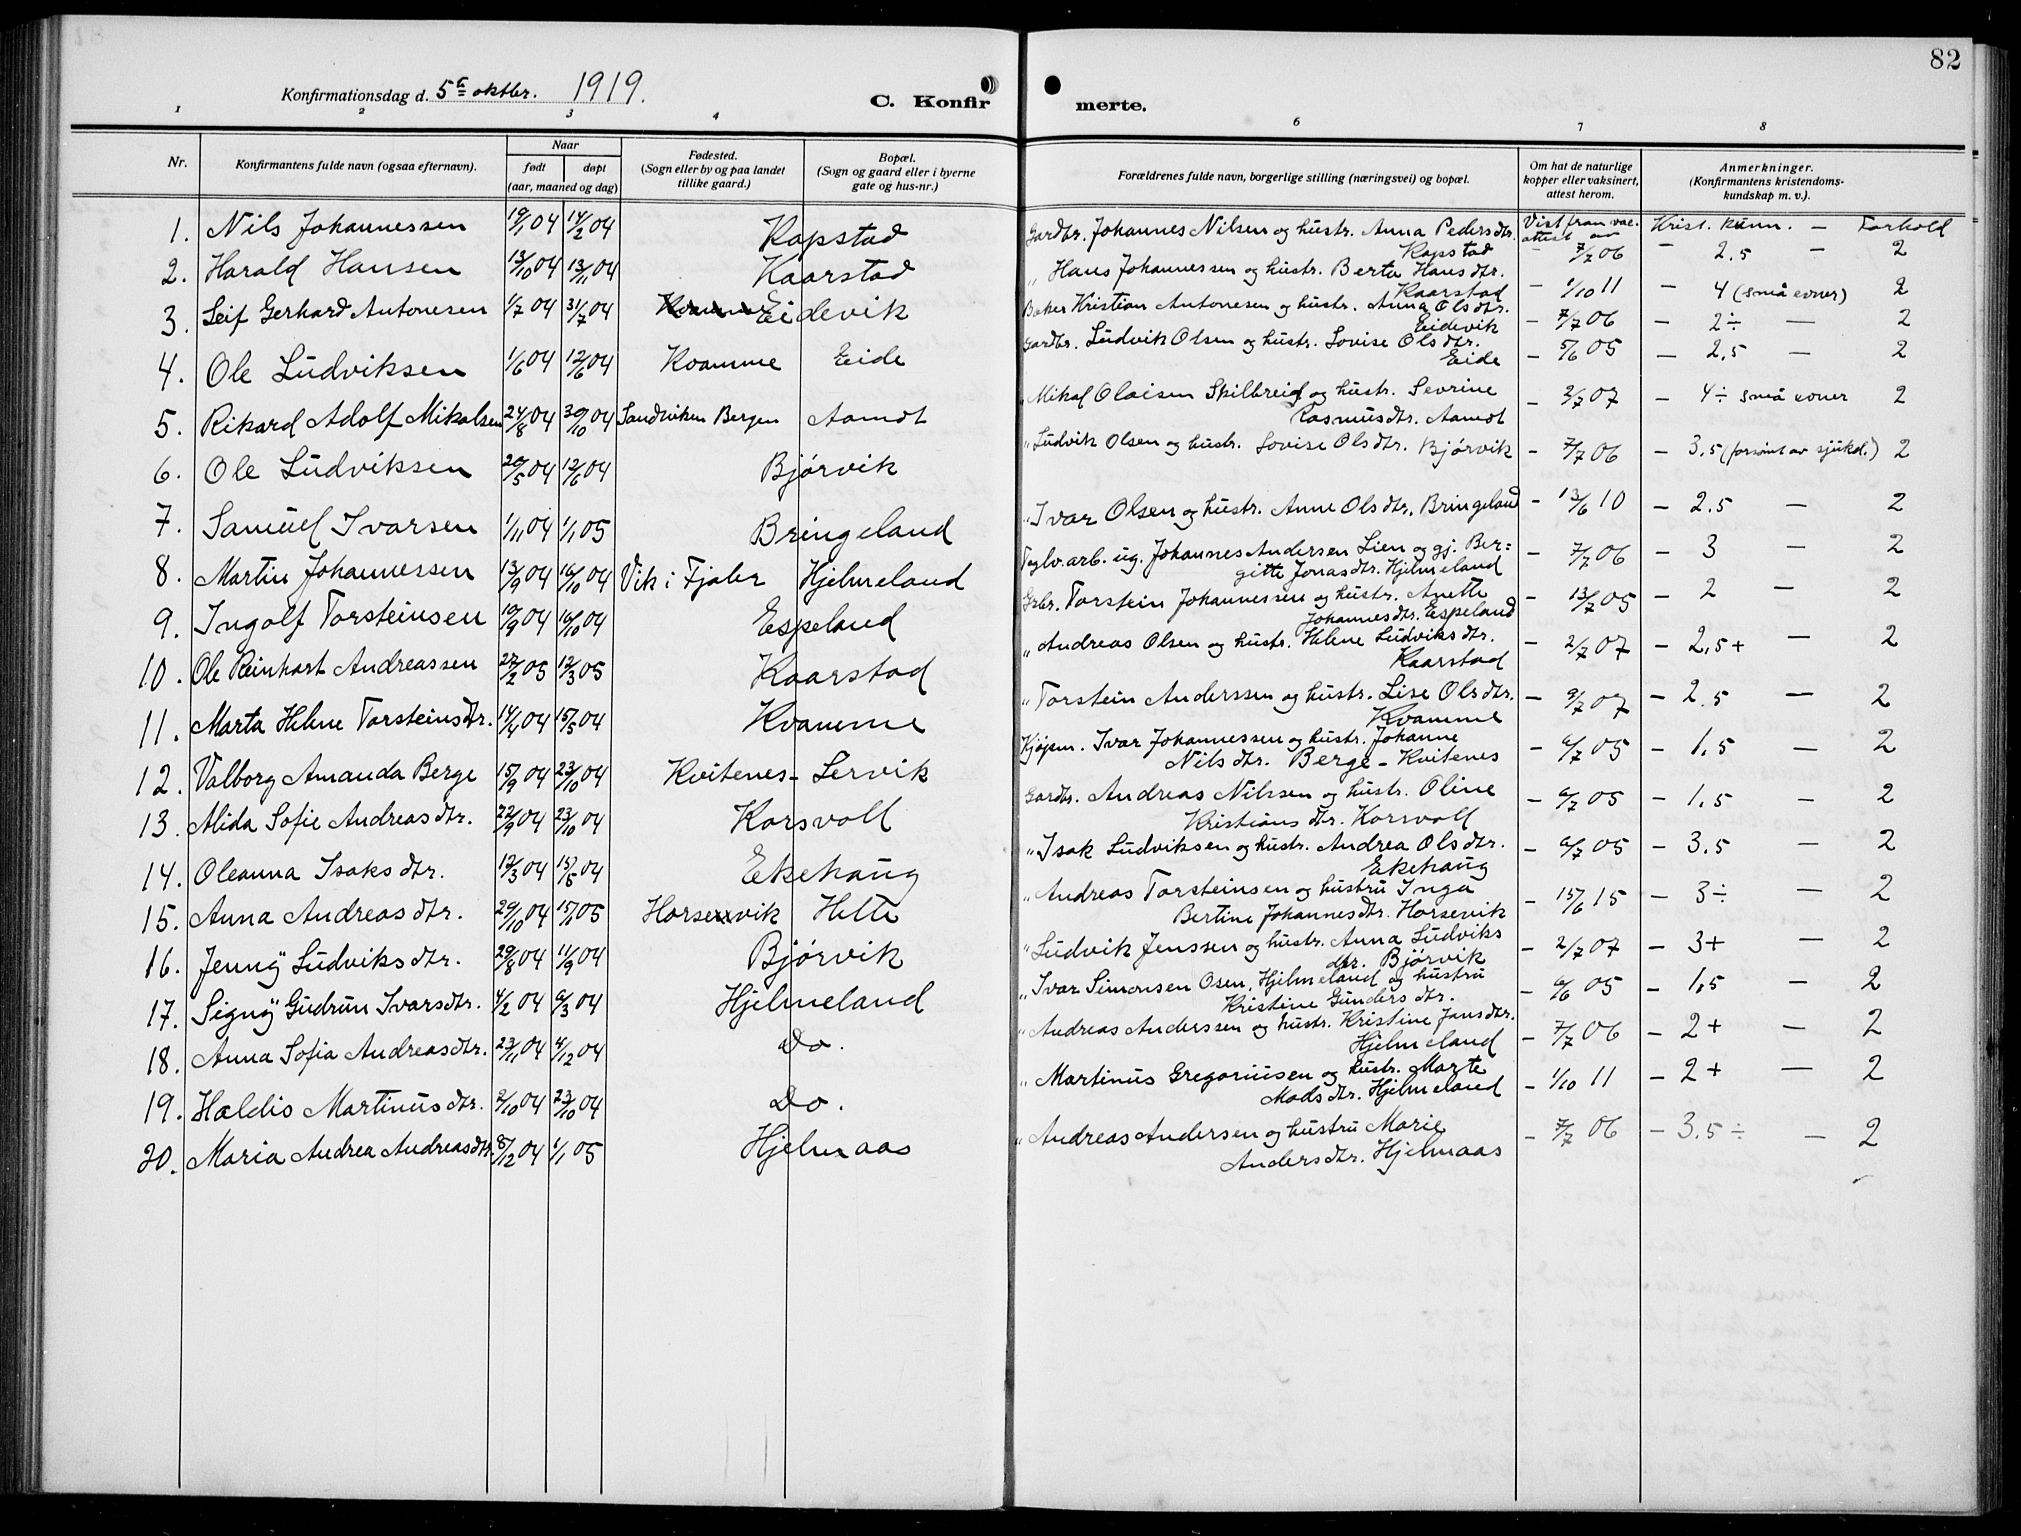 82
Konfirmationsdag d. 5te oktbr. 1919.
C. Konfirmerte.
1 2 3 4 6 7 8
Nr. Konfirmantens fulde navn (ogsaa efternavn). Naar født døpt (aar, maaned og dag) Fødested. (Sogn eller by og paa landet tillike gaard.) Bopæl. (Sogn og gaard eller i byerne gate og hus-nr.) Forældrenes fulde navn, borgerlige stilling (næringsvei) og bopæl. Om hat de naturlige kopper eller vaksinert, attest herom. Anmerkninger. (Konfirmantens kristendomskundskap m. v.).
1. Nils Johannessen 19/1 04 14/2 04 Kopstad Gardbr. Johannes Nilsen og hustr. Anna Pedersdtr. Kopstad Vist fram vac. attest av 7/7 06 Krist. kunn. 2,5 — Forhold 2
2. Harald Hansen 13/10 04 13/11 04 Kaarstad " Hans Johannessen og hustr. Berta Hansdtr. Kaarstad — 1/10 11 — 4 (små evner) 2
3. Leif Gerhard Antonesen 1/7 04 31/7 04 Eidevik Baker Kristian Antonesen og hustr. Anna Olsdtr. Eidevik — 7/7 06 — 2÷ — 2
4. Ole Ludviksen 1/6 04 12/6 04 Kvamme Eide Gardbr. Ludvik Olsen og hustr. Lovise Olsdtr. Eide — 5/6 05 — 2,5 — 2
5. Rikard Adolf Mikalsen 24/8 04 30/10 04 Sandviken Bergen Aamot " Mikal Olaisen Skilbreid og hustr. Sevrine Rasmusdtr. Aamot — 2/7 07 — 4÷ små evner 2
6. Ole Ludviksen 20/5 04 12/6 04 Bjørvik " Ludvik Olsen og hustr. Lovise Olsdtr. Bjørvik — 7/7 06 — 3,5 (forsømt av sjukd.) 2
7. Samuel Ivarsen 1/11 04 1/1 05 Bringeland " Ivar Olsen og hustr. Anne Olsdtr. Bringeland — 13/6 10 — 2,5 — 2
8. Martin Johannessen 13/9 04 16/10 04 Vik i Fjaler Hjelmeland Teglv.arb. ug. Johannes Andersen Lien og gj. Bergitte Jonasdtr. Hjelmeland — 7/7 06 — 3 — 2
9. Ingolf Torsteinsen 10/9 04 16/10 04 Espeland Grbr. Torstein Johannessen og hustr. Anette Johannesdtr. Espeland — 13/7 05 — 2 — 2
10. Ole Reinhart Andreassen 27/2 05 12/3 05 Kaarstad " Andreas Olsen og hustr. Helene Ludviksdtr. Kaarstad — 2/7 07 — 2,5+ — 2
11. Marta Helene Torsteinsdtr. 14/4 04 15/5 04 Kvamme " Torstein Anderssen og hustr. Lise Olsdtr. Kvamme — 9/7 07 — 2,5 — 2
12. Valborg Amanda Berge 15/9 04 23/10 04 Kvitenes - Lervik Kjøpm. Ivar Johannessen og hustr. Johanne Nilsdtr. Berge - Kvitenes — 6/7 05 — 1,5 — 2
13. Alida Sofie Andreasdtr. 22/9 04 23/10 04 Korsvoll Gardbr. Andreas Nilssen og hustr. Oline Kristiansdtr. Korsvoll — 6/7 05 — 1,5 — 2
14. Oleanna Isaksdtr. 12/3 04 15/5 04 Ekehaug " Isak Ludviksen og hustr. Andrea Olsdtr. Ekehaug — 6/7 05 — 3,5 — 2
15. Anna Andreasdtr. 29/10 04 15/1 05 Horsevik Helle " Andreas Torsteinsen og hustru Inga Bertine Johannesdtr. Horsevik — 15/6 15 — 3÷ — 2
16. Jenny Ludviksdtr. 29/8 04 11/9 04 Bjørvik " Ludvik Jenssen og hustr. Anna Ludviksdtr. Bjørvik — 2/7 07 — 3+ — 2
17. Signy Gudrun Ivarsdtr. 4/2 04 6/3 04 Hjelmeland " Ivar Simonsen Osen, Hjelmeland og hustru Kristine Gundersdtr. — 6/6 05 — 1,5 — 2
18. Anna Sofia Andreasdtr. 23/11 04 4/12 04 Do. " Andreas Anderssen og hustr. Kristine Jensdtr. Hjelmeland — 7/7 06 — 2+ — 2
19. Haldis Martinusdtr. 2/10 04 23/10 04 Do. " Martinus Gregoriusen og hustr. Marte Madsdtr. Hjelmeland — 1/10 11 — 2+ — 2
20. Maria Andrea Andreasdtr. 8/12 04 1/1 05 Hjelmaas " Andreas Andersen og hustru Marie Andersdtr. Hjelmaas — 7/7 06 — 3,5÷ — 2